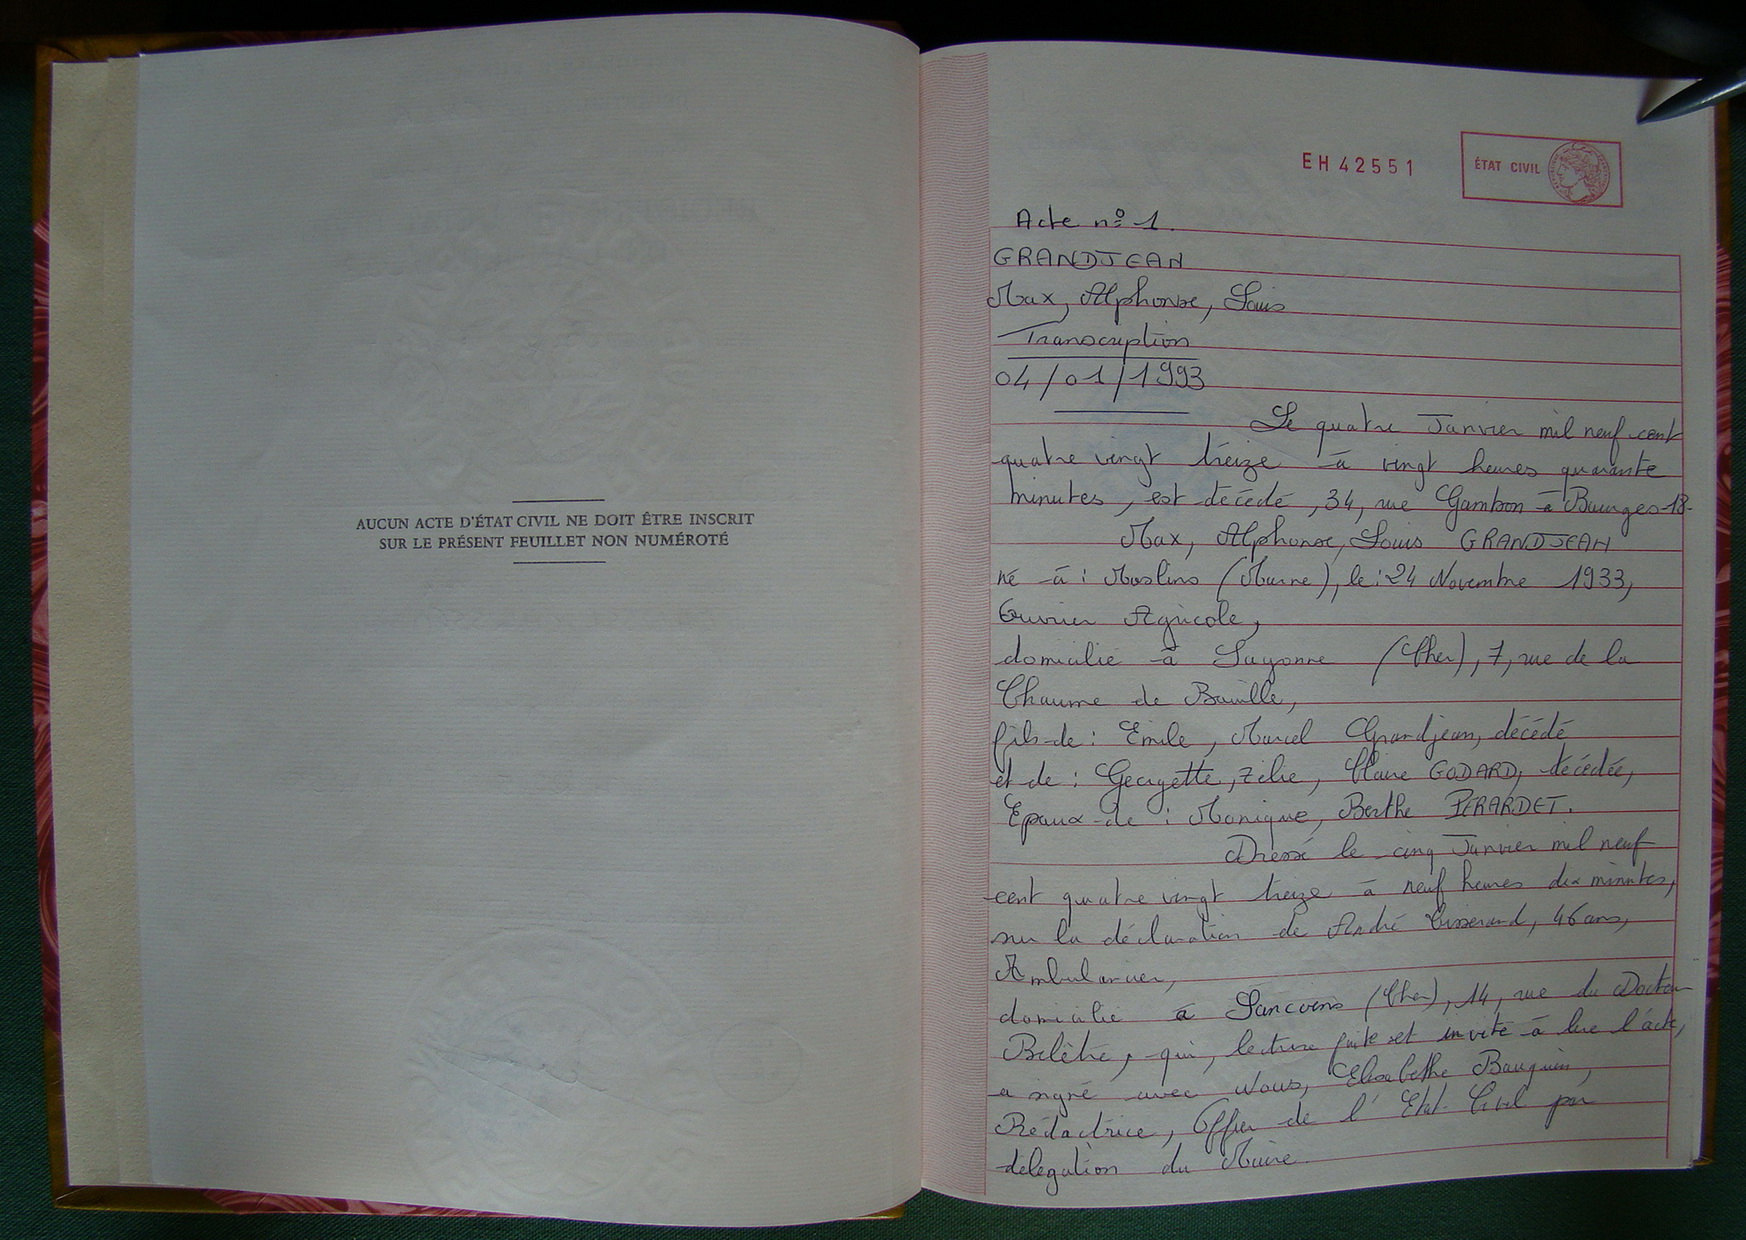 AUCUN ACTE D'ÉTAT CIVIL NE DOIT ÊTRE INSCRIT
SUR LE PRÉSENT FEUILLET NON NUMÉROTÉ
EH 42551
ÉTAT CIVIL
Acte nº 1.
GRANDJEAN
Max, Alphonse, Louis
Transcription
04/01/1993
Le quatre Janvier mil neuf cent
quatre vingt treize à vingt heures quarante
minutes, est décédé, 34, rue Gambon à Bourges-18-
Max, Alphonse, Louis GRANDJEAN
né à : Moslins (Marne), le : 24 Novembre 1933,
Ouvrier Agricole,
domicilié à Sagonne (Cher), 7, rue de la
Chaume de
fils de : Emile, Marcel Grandjean, décédé
et de : Georgette, Zélie, Claire GODARD, décédée,
Epoux de : Monique, Berthe PERARDET.
Dressé le cinq Janvier mil neuf
cent quatre vingt treize à neuf heures dix minutes,
sur la déclaration de André Tisserand, 46 ans,
Ambulancier,
domicilié à Sancoins (Cher), 14, rue du Docteur
qui, lecture faite et invité à lire l'acte,
a signé avec Nous, Elisabethe Bauguin,
Rédactrice, Officier de l'Etat Civil par
délégation du Maire.